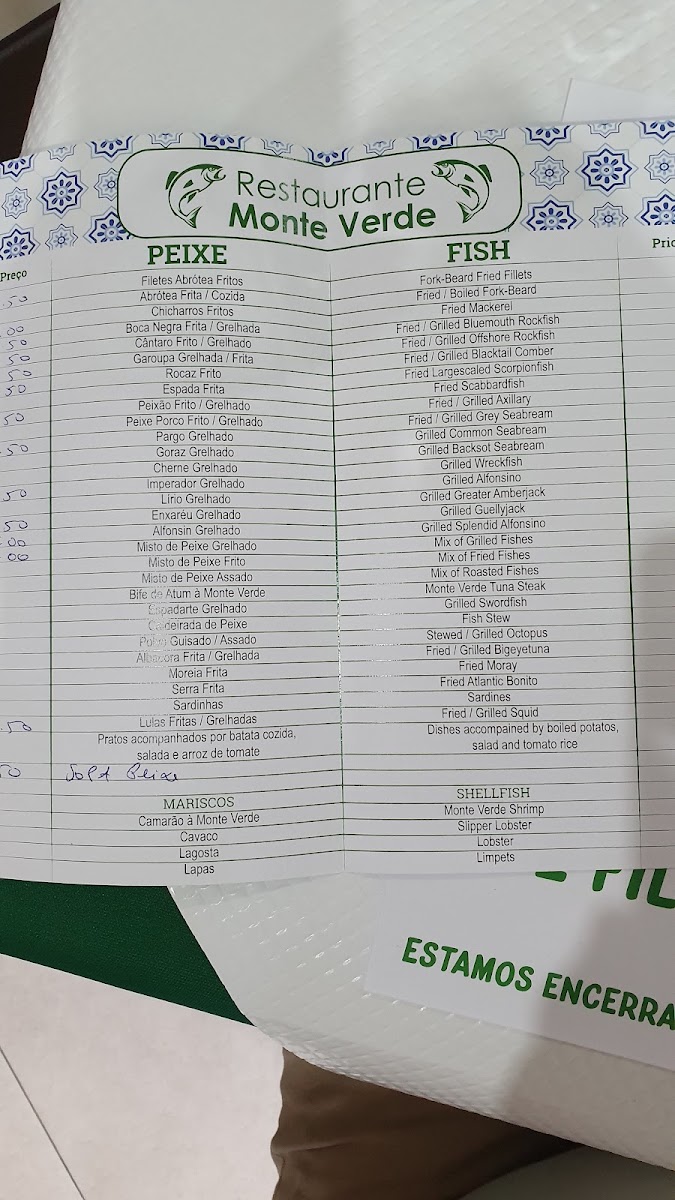 Restaurante
Monte Verde
Preço
PEIXE
FISH
Filetes Abrótea Fritos
Fork-Beard Fried Fillets
.50
Abrótea Frita / Cozida
Fried / Boiled Fork-Beard
Chicharros Fritos
Fried Mackerel
.00
Boca Negra Frita / Grelhada
Fried / Grilled Bluemouth Rockfish
50
Cântaro Frito / Grelhado
Fried / Grilled Offshore Rockfish
50
Garoupa Grelhada / Frita
Fried / Grilled Blacktail Comber
50
Rocaz Frito
Fried Largescaled Scorpionfish
50
Espada Frita
Fried Scabbardfish
Peixão Frito / Grelhado
Fried / Grilled Axillary
.50
Peixe Porco Frito / Grelhado
Fried / Grilled Grey Seabream
Pargo Grelhado
Grilled Common Seabream
.50
Goraz Grelhado
Grilled Backsot Seabream
Cherne Grelhado
Grilled Wreckfish
Imperador Grelhado
Grilled Alfonsino
.50
Lírio Grelhado
Grilled Greater Amberjack
Enxaréu Grelhado
Grilled Guellyjack
50
Alfonsin Grelhado
Grilled Splendid Alfonsino
.00
Misto de Peixe Grelhado
Mix of Grilled Fishes
00
Misto de Peixe Frito
Mix of Fried Fishes
Misto de Peixe Assado
Mix of Roasted Fishes
Bife de Atum à Monte Verde
Monte Verde Tuna Steak
Espadarte Grelhado
Grilled Swordfish
Caldeirada de Peixe
Fish Stew
Polvo Guisado / Assado
Stewed / Grilled Octopus
Albacora Frita / Grelhada
Fried / Grilled Bigeyetuna
Moreia Frita
Fried Moray
Serra Frita
Fried Atlantic Bonito
Sardinhas
Sardines
.50
Lulas Fritas / Grelhadas
Fried / Grilled Squid
Pratos acompanhados por batata cozida,
salada e arroz de tomate
Dishes accompained by boiled potatos,
salad and tomato rice
50
Peixe
MARISCOS
SHELLFISH
Camarão à Monte Verde
Monte Verde Shrimp
Cavaco
Slipper Lobster
Lagosta
Lobster
Lapas
Limpets
ESTAMOS ENCERRA